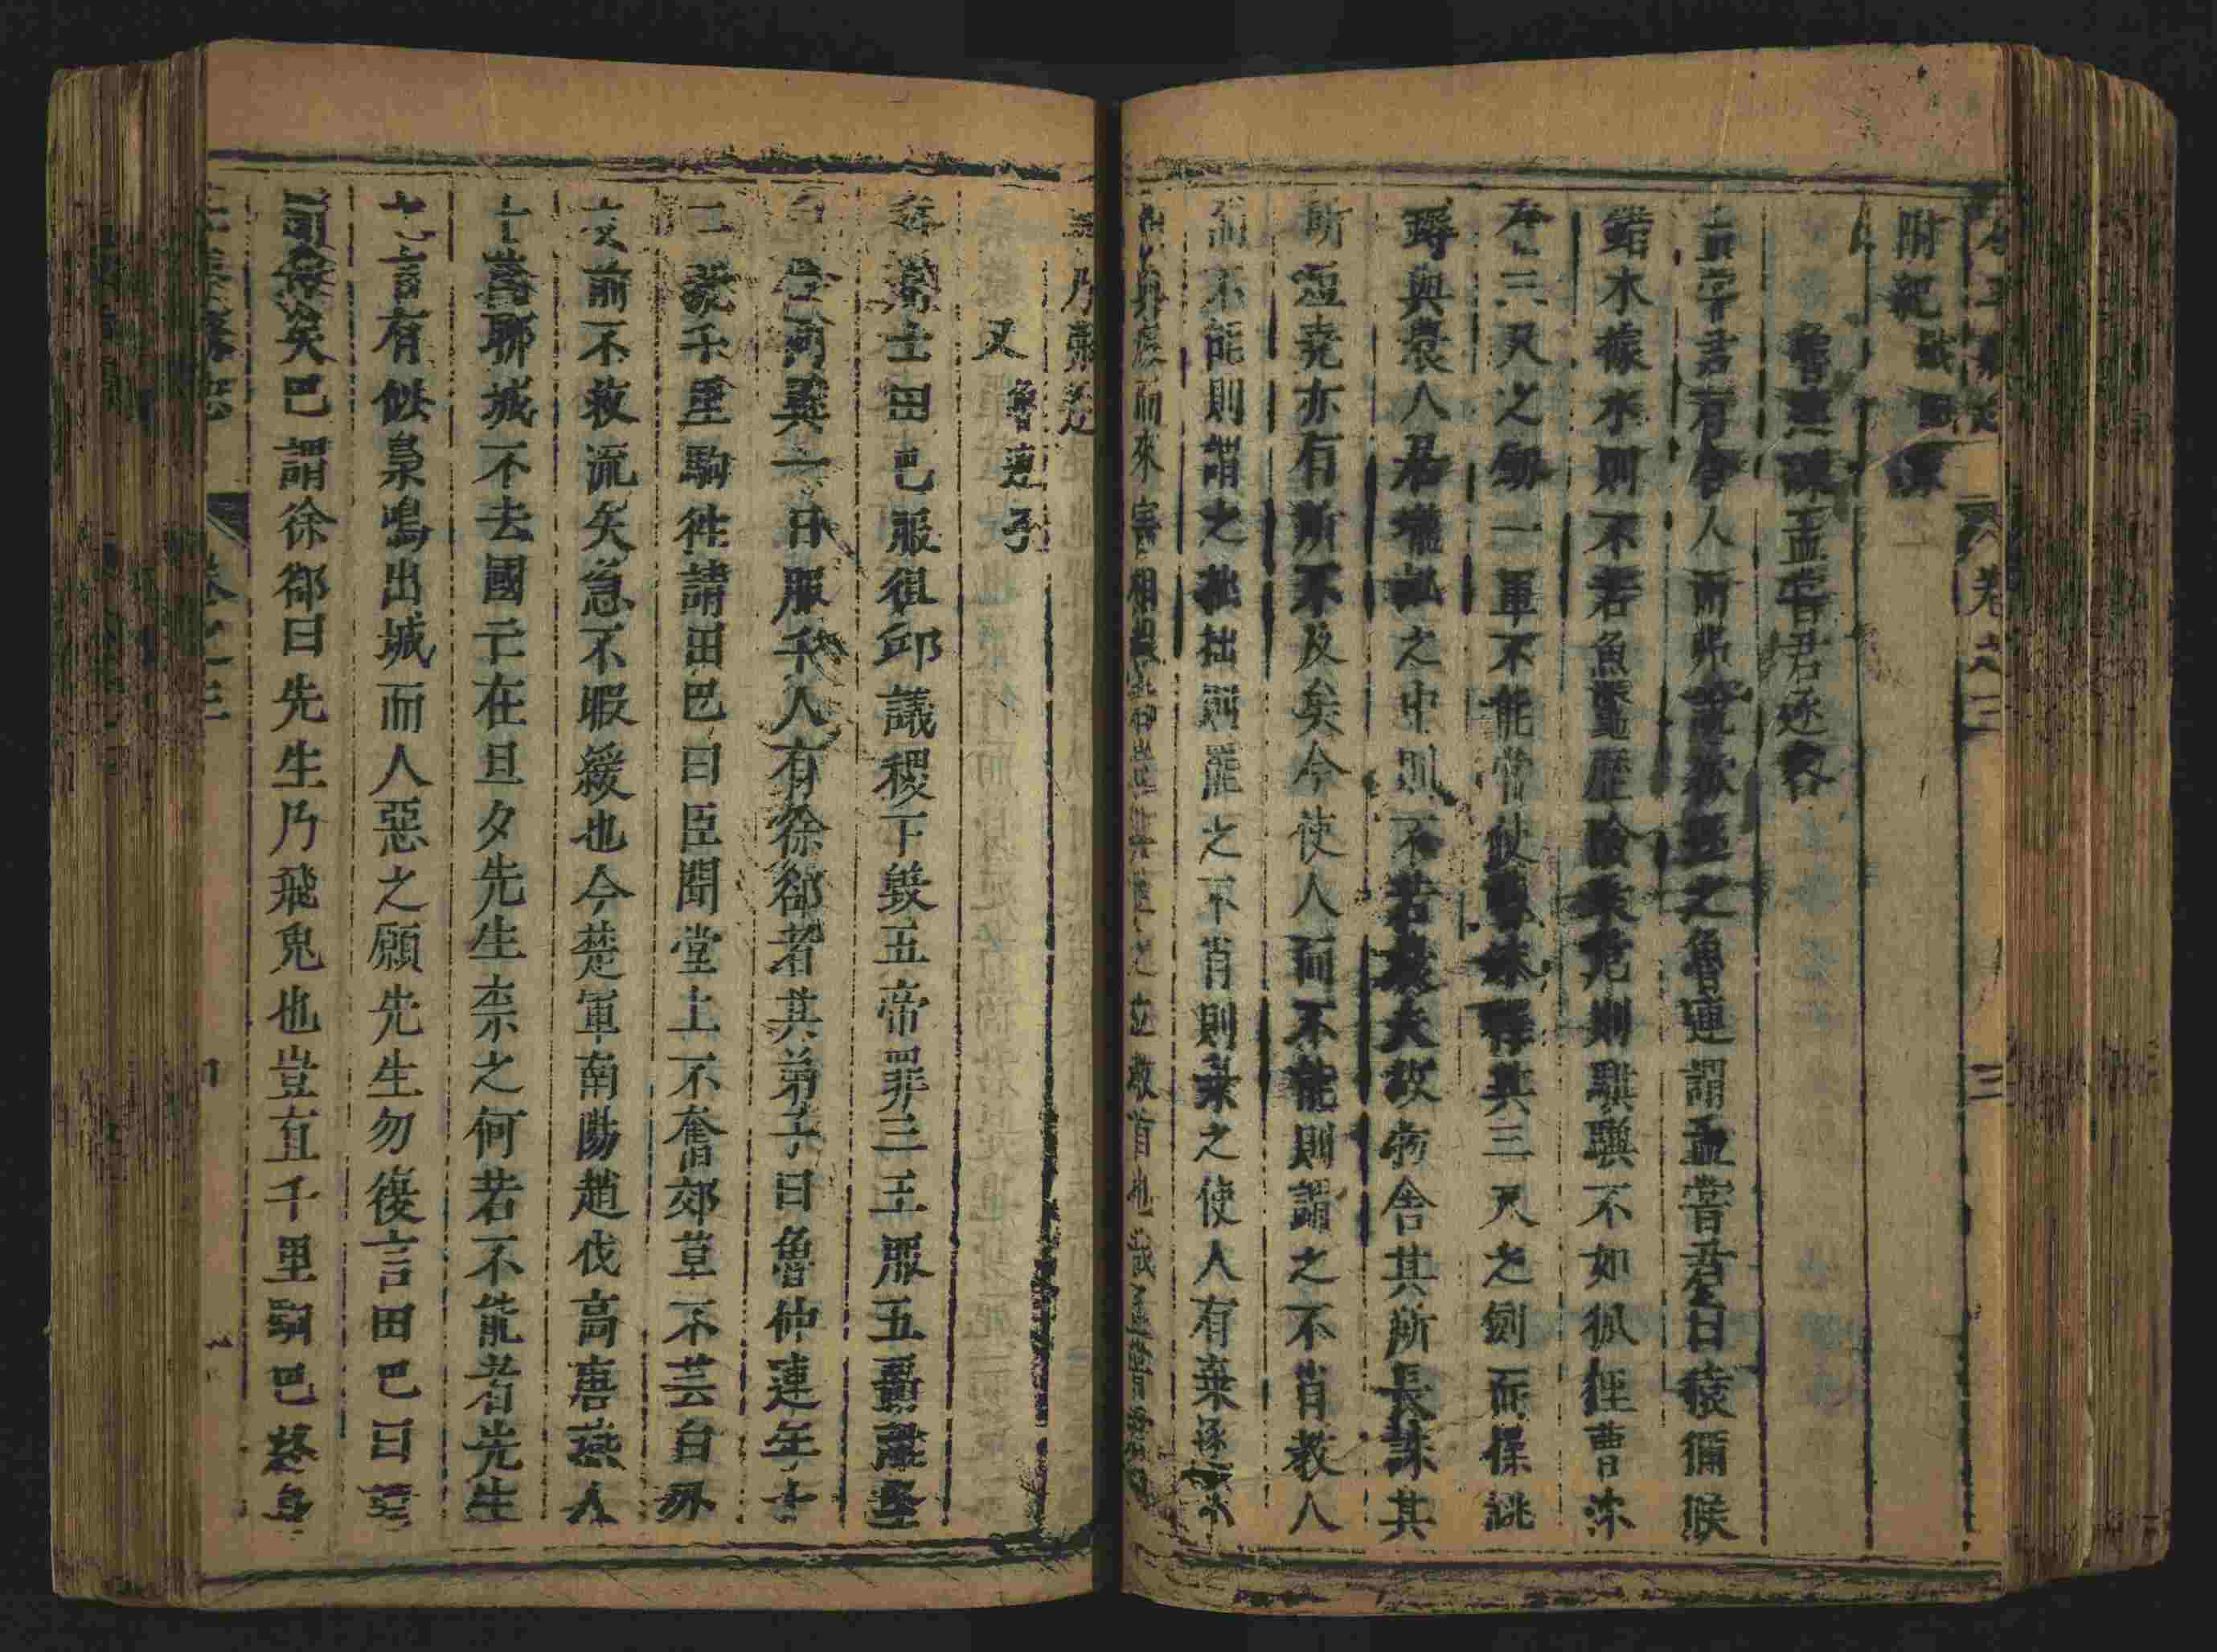 卷之三 三
附紀
魯連諫孟嘗君逐客
孟嘗君有舍人而弗說欲逐之魯連謂孟嘗君曰猿獼猴
錯木據水則不若魚鱉歷險乘危則騏驥不如狐狸曹沫
奮三尺之劒一軍不能當使曹沫釋其三尺之劒而操銚
鎒與農人居壠畝之中則不若農夫故物舍其所長誅其
所短堯亦有所不及矣今使人而不能則謂之不肖教人
而不能則謂之拙拙則罷之不肖則棄之使人有棄逐不
相與處而來害相報
乃弗逐
又 魯連子
齊辯士田巴服徂邱議稷下毀五帝罪三王服五
合同異一日服千人有徐郤者其弟子曰魯仲連年十
二號千里駒往請田巴曰臣聞堂上不奮郊草不芸白刃
交前不救流矢急不暇緩也今楚軍南陽趙伐高唐燕人
十萬聊城不去國亡在旦夕先生柰之何若不能者先生
之言有似梟鳴出城而人惡之願先生勿復言田巴曰謹
聞命矣巴謂徐郤曰先生乃飛兔也豈直千里駒巴終身
卷之三